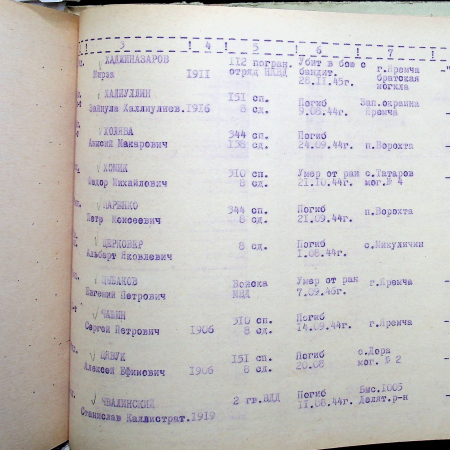 3 4 5 6 7
ХАДЖИНАЗАРОВ 112 погран. Убит в бою с г.Яремча
Мирза 1911 отряд НКВД бандит. братская
28.11.45г. могила
ХАЛИУЛЛИН 151 сп. Погиб Зап.окраина
1916 8 сд. 9.08.44г. Яремча
344 сп. Погиб
Анисий Макарович 138 сд. 24.09.44г. п.Ворохта
ХОМИК 310 сп. Умер от ран с.Татаров
Федор Михайлович 8 сд. 21.10.44г. мог.№ 4
ЦАРЕНКО 344 сп. Погиб п.Ворохта
Петр Моисеевич 8 сд. 21.09.44г.
ЦЕРКОВЕР 8 сд. Погиб с.Микуличин
Альберт Яковлевич 1.08.44г.
Войска Умер от ран г.Яремча
Евгений Петрович 7.09.46г.
310 сп. Погиб
Сергей Петрович 1906 8 сд. 14.09.44г. г.Яремча
151 сп. Погиб с.Дора
Алексей Ефимович 1906 8 сд. 20.08 мог. № 2
ЧВАЛИНСКИЙ 2 гв.ВДД Погиб Выс.1005
Станислав Каллистрат.1919 11.08.44г. Делят.р-н